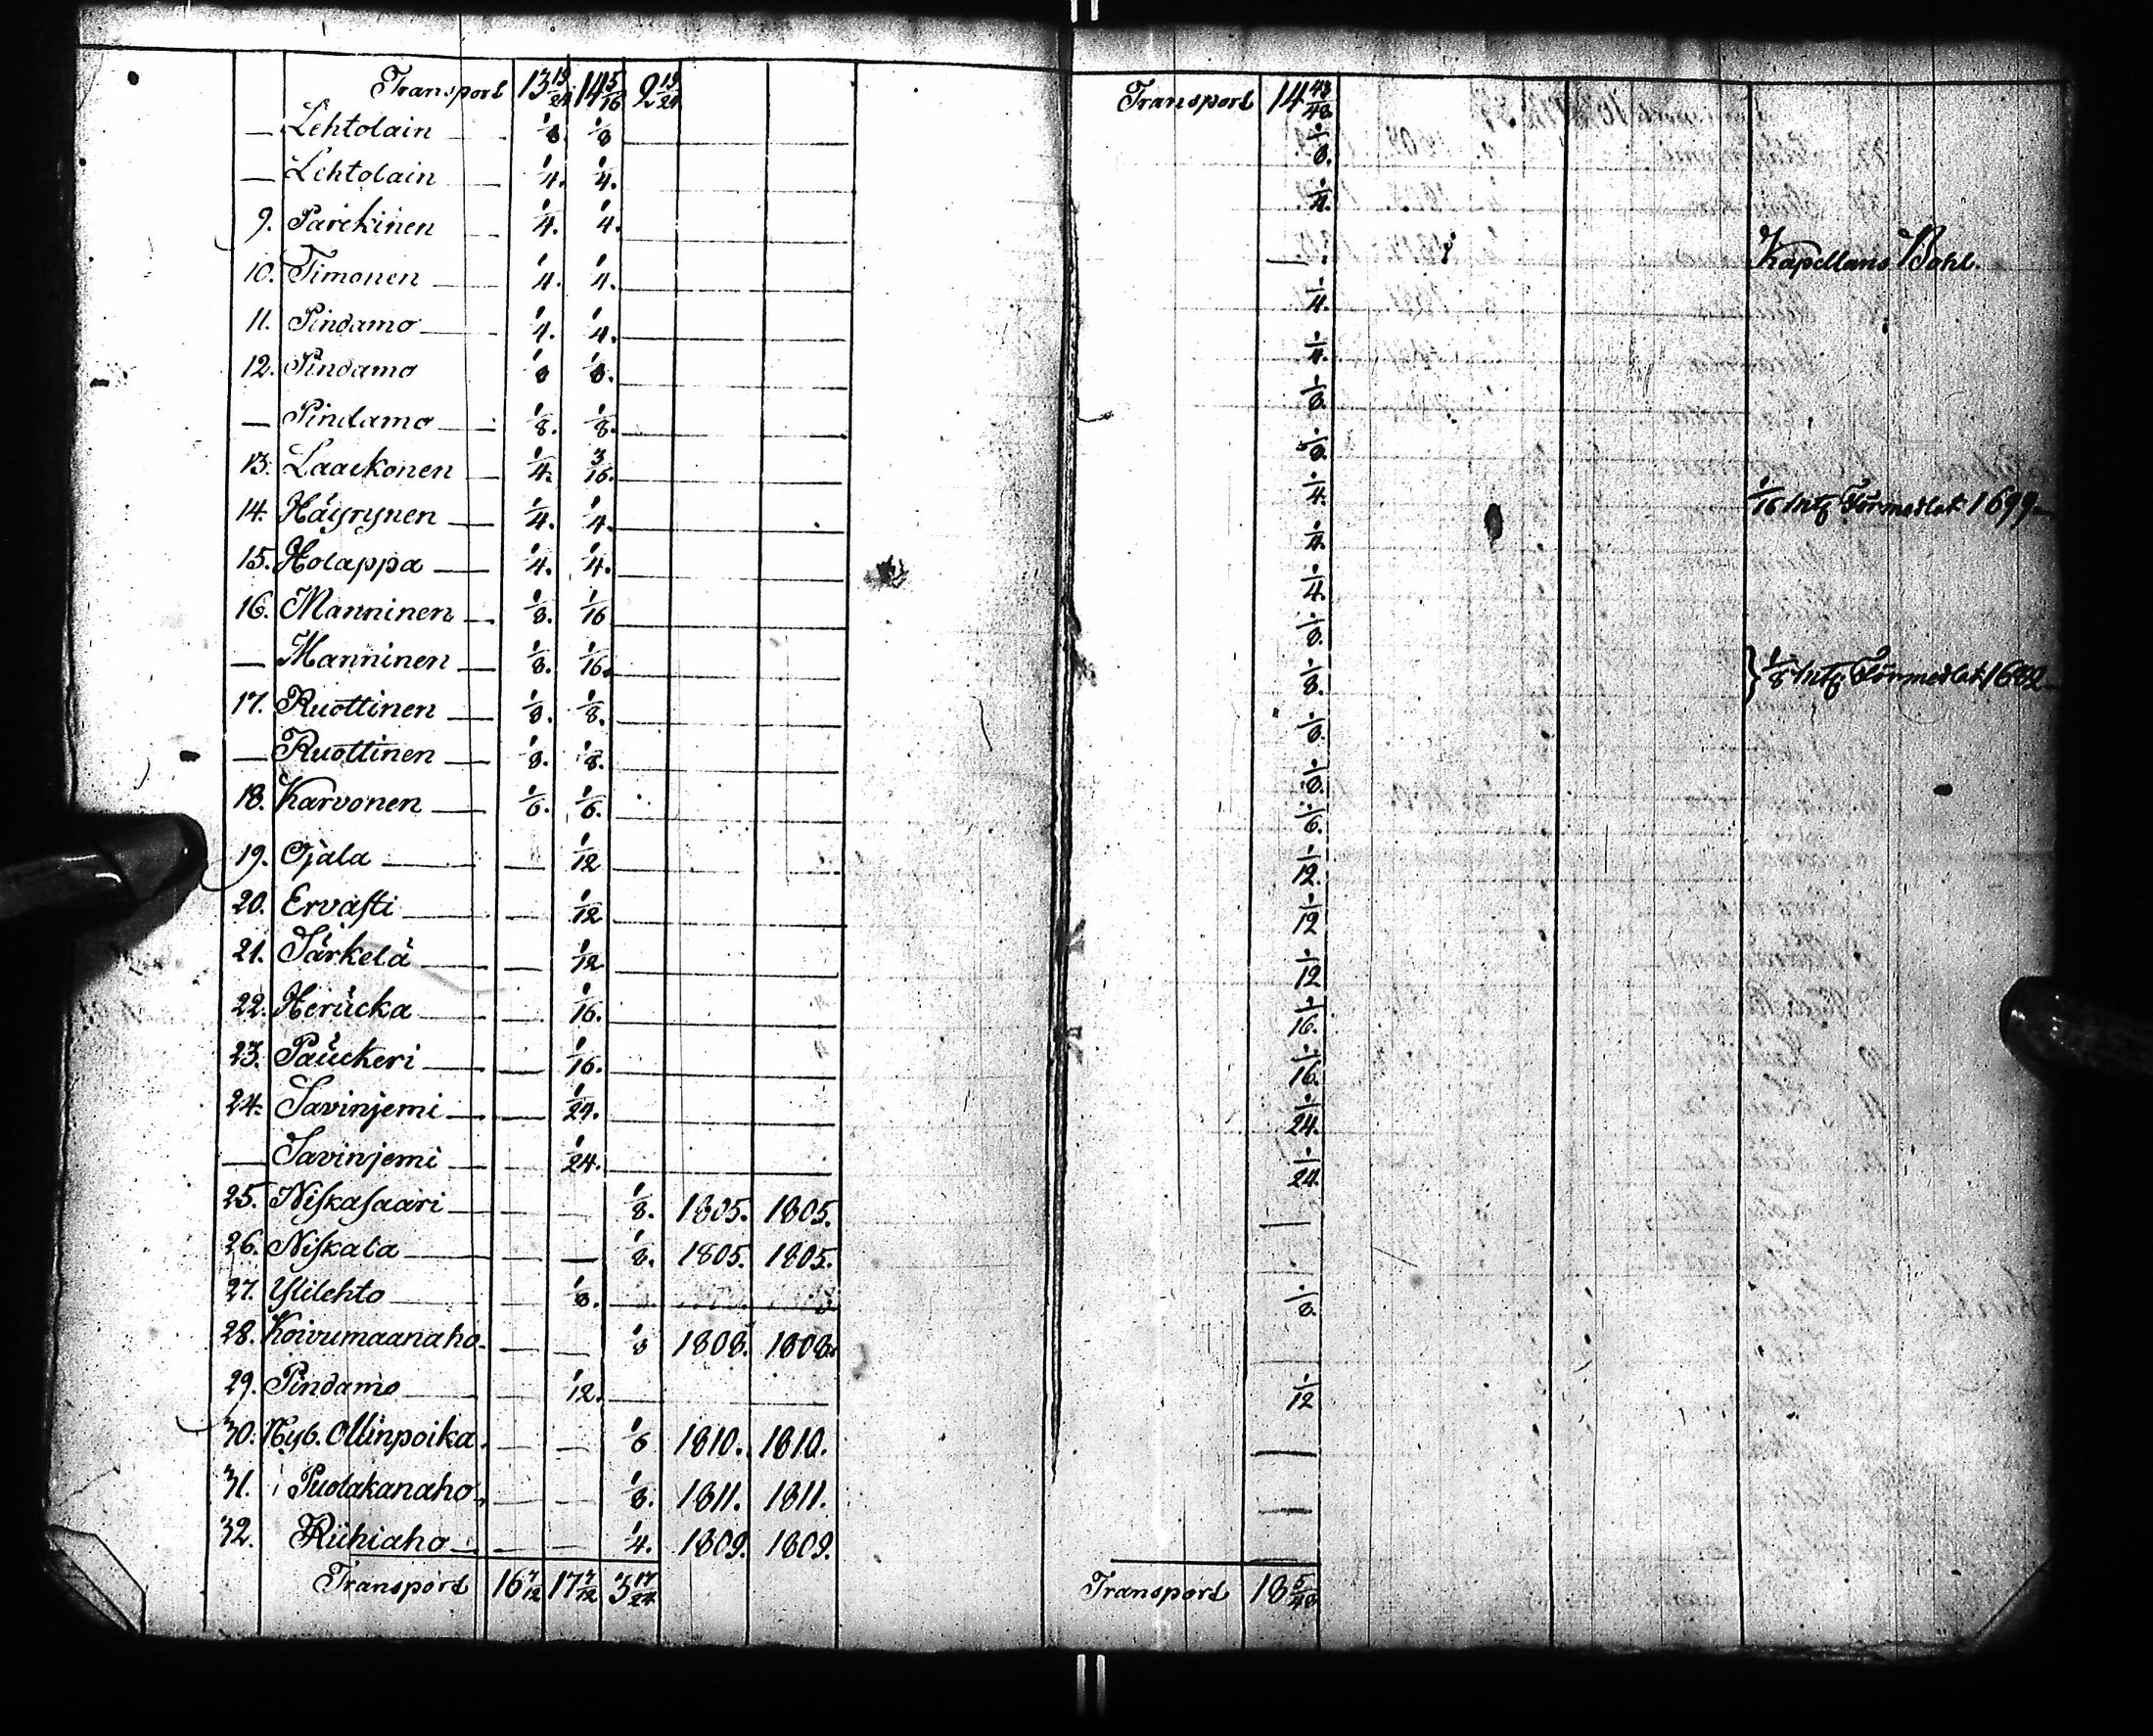 Transport 13 19/24 14 5/16 2 19/24
— Lehtolain 1/8. 1/8
— Lehtolain 1/4. 1/4.
9. Pärckinen 1/4. 1/4.
10. Timonen 1/4. 1/4.
11. Pindamo 1/4. 1/4.
12. Pindamo 1/8 1/8.
— Pindamo 1/8. 1/8.
13. Laackonen 1/4. 3/16.
14. Häyrynen 1/4. 1/4.
15. Holappa 1/4. 1/4.
16. Manninen 1/8. 1/16
— Manninen 1/8. 1/16.
17. Ruottinen 1/8. 1/8.
— Ruottinen 1/8. 1/8.
18. Karvonen 1/6. 1/6.
19. Ojala — 1/12
20. Ervasti — 1/12
21. Särkelä — 1/12
22. Hericka — 1/16.
23. Pauckeri — 1/16.
24. Savinjemi — 1/24.
— Savinjemi — 1/24.
25. Niskasaari — — 1/8. 1805. 1805.
26. Niskala — — 1/8. 1805. 1805.
27. Ylilehto — 1/8.
28. Koivumaanaho — — 1/8 1808. 1808.
29. Pindamo — 1/12.
30. Nyb. Ollinpoika — — 1/6 1810. 1810.
31. Puolakanaho — — 1/8. 1811. 1811.
32. Riihiaho — — 1/4. 1809. 1809.
Transport 16 7/12 17 7/12 3 17/24
Transport 14 43/48
1/8.
1/4.
— Kapellans Bohl.
1/4.
1/4.
1/8.
1/8.
1/4. 1/16 mtl Förmedlat 1699
1/4.
1/4.
1/8.
1/8. } 1/8 mtl Förmedlat 1682
1/8.
1/8.
1/6.
1/12.
1/12
1/12
1/16.
1/16.
1/24.
1/24.
—
1/8.
1/12
—
—
—
Transport 18 5/48